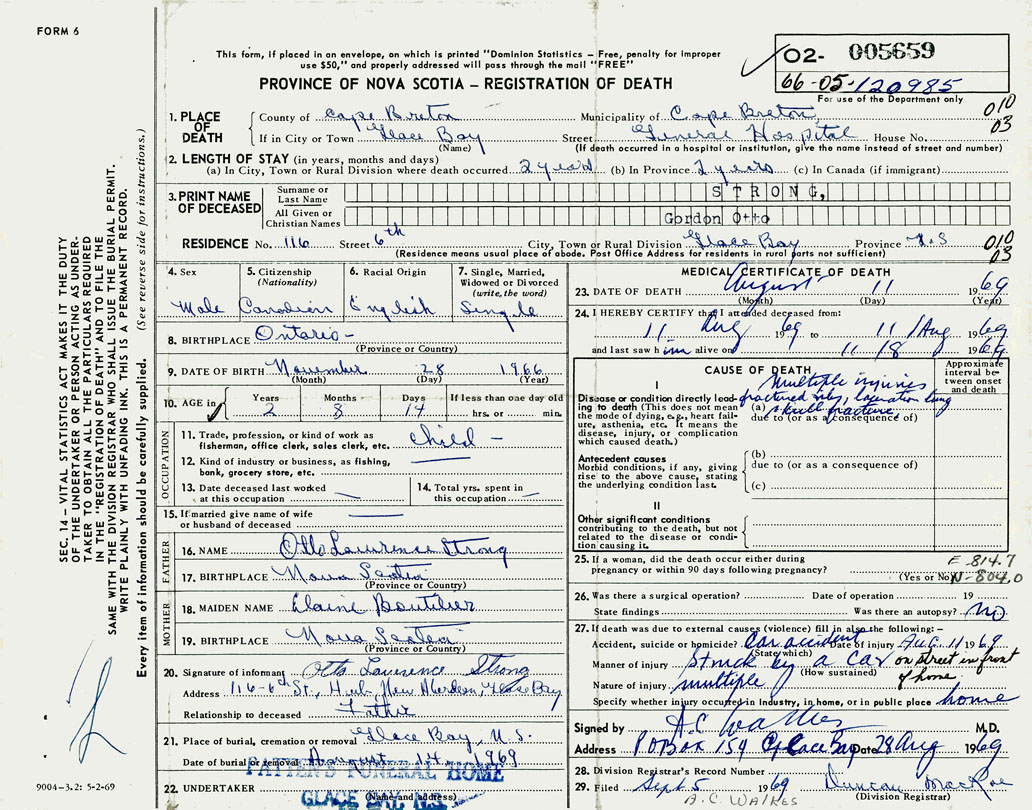 FORM 6
This form, if placed in an envelope, on which is printed "Dominion Statistics – Free, penalty for improper
use $50," and properly addressed will pass through the mail "FREE"
PROVINCE OF NOVA SCOTIA – REGISTRATION OF DEATH
O2- 005659
66-05-120985
For use of the Department only
1. PLACE OF DEATH
County of Cape Breton Municipality of Cape Breton, 010
If in City or Town Glace Bay Street General Hospital House No. 03
(Name) (If death occurred in a hospital or institution, give the name instead of street and number)
2. LENGTH OF STAY (in years, months and days)
(a) In City, Town or Rural Division where death occurred 2 years (b) In Province 2 years (c) In Canada (if immigrant)
3. PRINT NAME OF DECEASED
Surname or Last Name STRONG,
All Given or Christian Names Gordon Otto
RESIDENCE No. 116 Street 6th City, Town or Rural Division Glace Bay Province N.S 010
03
(Residence means usual place of abode. Post Office Address for residents in rural parts not sufficient)
4. Sex
Male
5. Citizenship
(Nationality)
Canadian
6. Racial Origin
English
7. Single, Married,
Widowed or Divorced
(write, the word)
Single
8. BIRTHPLACE Ontario -
(Province or Country)
9. DATE OF BIRTH November 28 1966
(Month) (Day) (Year)
10. AGE in
Years Months Days If less than one day old
2 8 14 hrs. or min.
OCCUPATION
11. Trade, profession, or kind of work as
fisherman, office clerk, sales clerk, etc. child -
12. Kind of industry or business, as fishing,
bank, grocery store, etc.
13. Date deceased last worked
at this occupation
14. Total yrs. spent in
this occupation
15. If married give name of wife
or husband of deceased
FATHER
16. NAME Otto Lawrence Strong
17. BIRTHPLACE Nova Scotia
(Province or Country)
MOTHER
18. MAIDEN NAME Elaine Boutilier
19. BIRTHPLACE Nova Scotia
(Province or Country)
20. Signature of informant Otto Lawrence Strong
Address 116-6th St., Hub, New Aberdeen, Glace Bay
Relationship to deceased Father
21. Place of burial, cremation or removal Glace Bay, N.S.
Date of burial or removal August 14, 1969
22. UNDERTAKER
(Name and address)
PATTEN'S FUNERAL HOME
GLACE BAY, N.S.
MEDICAL CERTIFICATE OF DEATH
23. DATE OF DEATH August 11 1969
(Month) (Day) (Year)
24. I HEREBY CERTIFY that I attended deceased from:
11 Aug 1969 to 11 Aug 1969
and last saw him alive on 11/8 1969
CAUSE OF DEATH
Approximate
interval between onset
and death
I
Disease or condition directly leading to death (This does not mean
the mode of dying, e.g., heart failure, asthenia, etc. It means the
disease, injury, or complication
which caused death.)
Multiple injuries
fractured ribs, laceration lung
(a) skull fracture
due to (or as a consequence of)
Antecedent causes
Morbid conditions, if any, giving
rise to the above cause, stating
the underlying condition last.
(b)
due to (or as a consequence of)
(c)
II
Other significant conditions
contributing to the death, but not
related to the disease or condition causing it.
25. If a woman, did the death occur either during
pregnancy or within 90 days following pregnancy?
(Yes or No)
E-814.7
N-804.0
26. Was there a surgical operation? Date of operation 19
State findings Was there an autopsy? NO
27. If death was due to external causes (violence) fill in also the following:–
Accident, suicide or homicide? Car accident Date of injury AUG. 11 1969
(State which)
Manner of injury Struck by a car on street in front of home
(How sustained)
Nature of injury multiple
Specify whether injury occurred in Industry, in home, or in public place home
Signed by A.C. Walkes M.D.
Address P O Box 159 Glace Bay Date 28 Aug 1969
28. Division Registrar's Record Number
29. Filed Sept. 5 1969 Duncan MacRae
(Division Registrar)
A.C. WALKES
SEC. 14 – VITAL STATISTICS ACT MAKES IT THE DUTY
OF THE UNDERTAKER OR PERSON ACTING AS UNDERTAKER TO OBTAIN ALL THE PARTICULARS REQUIRED
IN THE "REGISTRATION OF DEATH" AND TO FILE THE
SAME WITH THE DIVISION REGISTRAR WHO SHALL ISSUE THE BURIAL PERMIT.
WRITE PLAINLY WITH UNFADING INK. THIS IS A PERMANENT RECORD.
Every item of information should be carefully supplied. (See reverse side for instructions.)
9004–3.2: 5-2-69